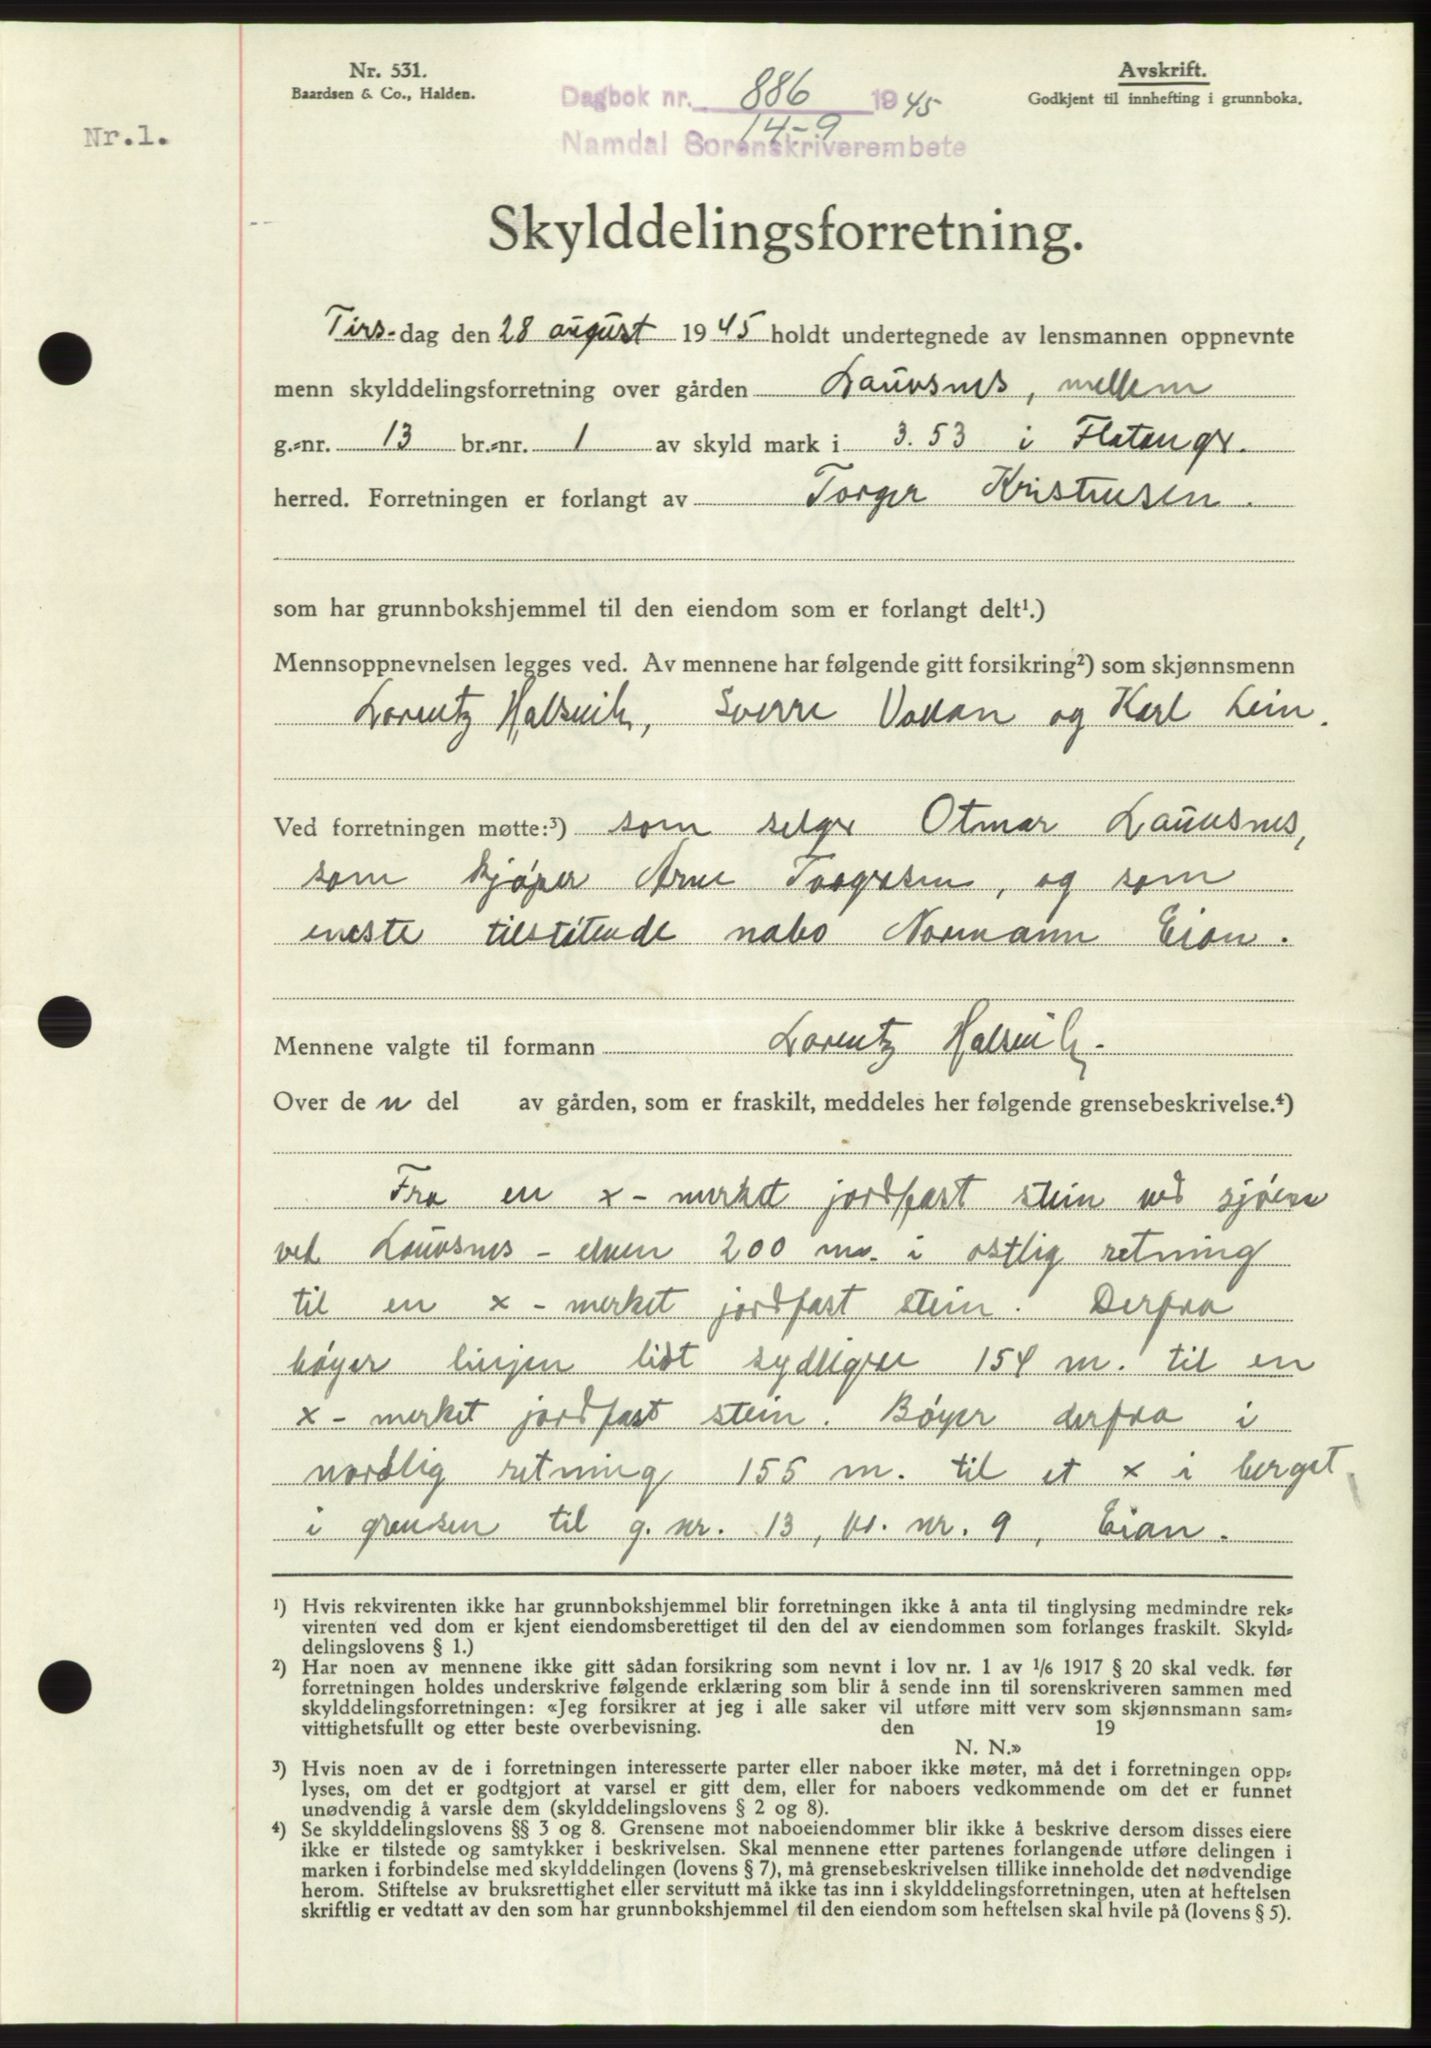 Nr. 531.
Baardsen & Co., Halden.
Avskrift.
Godkjent til innhefting i grunnboka.
Dagbok nr. 886 1945
14-9
Namdal Sorenskriverembete
Nr.1.
Skylddelingsforretning.
Tirs-dag den 28 august 1945 holdt undertegnede av lensmannen oppnevnte
menn skylddelingsforretning over gården Lauvsnes, mellem
g.-nr. 13 br.-nr. 1 av skyld mark i 3.53 i Flatanger.
herred. Forretningen er forlangt av Torger Kristensen.
som har grunnbokshjemmel til den eiendom som er forlangt delt¹.)
Mennsoppnevnelsen legges ved. Av mennene har følgende gitt forsikring²) som skjønnsmenn
Lorentz Halsvik, Sverre og Karl Lein.
Ved forretningen møtte:³) som selger Otmar Lauvsnes,
som kjøper Arne Torgersen, og som
eneste tilstøtende nabo Normann Eian.
Mennene valgte til formann Lorentz Halsvik.
Over de n del av gården, som er fraskilt, meddeles her følgende grensebeskrivelse.⁴)
Fra en x-merket jordfast stein ved sjøen
ved Lauvsnes-elven 200 m. i østlig retning
til en x-merket jordfast stein. Derfra
bøyer linjen lidt sydligere 154 m. til en
x-merket jordfast stein. Bøyer derfra i
nordlig retning 155 m. til et x i berget
i grensen til g. nr. 13, br. nr. 9, Eian.
¹) Hvis rekvirenten ikke har grunnbokshjemmel blir forretningen ikke å anta til tinglysing medmindre rek-
virenten ved dom er kjent eiendomsberettiget til den del av eiendommen som forlanges fraskilt. Skyld-
delingslovens § 1.)
²) Har noen av mennene ikke gitt sådan forsikring som nevnt i lov nr. 1 av 1/6 1917 § 20 skal vedk. før
forretningen holdes underskrive følgende erklæring som blir å sende inn til sorenskriveren sammen med
skylddelingsforretningen: «Jeg forsikrer at jeg i alle saker vil utføre mitt verv som skjønnsmann sam-
vittighetsfullt og etter beste overbevisning. den 19
N. N.»
³) Hvis noen av de i forretningen interesserte parter eller naboer ikke møter, må det i forretningen opp-
lyses, om det er godtgjort at varsel er gitt dem, eller for naboers vedkommende om det er funnet
unødvendig å varsle dem (skylddelingslovens § 2 og 8).
⁴) Se skylddelingslovens §§ 3 og 8. Grensene mot naboeiendommer blir ikke å beskrive dersom disses eiere
ikke er tilstede og samtykker i beskrivelsen. Skal mennene etter partenes forlangende utføre delingen i
marken i forbindelse med skylddelingen (lovens § 7), må grensebeskrivelsen tillike inneholde det nødvendige
herom. Stiftelse av bruksrettighet eller servitutt må ikke tas inn i skylddelingsforretningen, uten at heftelsen
skriftlig er vedtatt av den som har grunnbokshjemmel til den eiendom som heftelsen skal hvile på (lovens § 5).